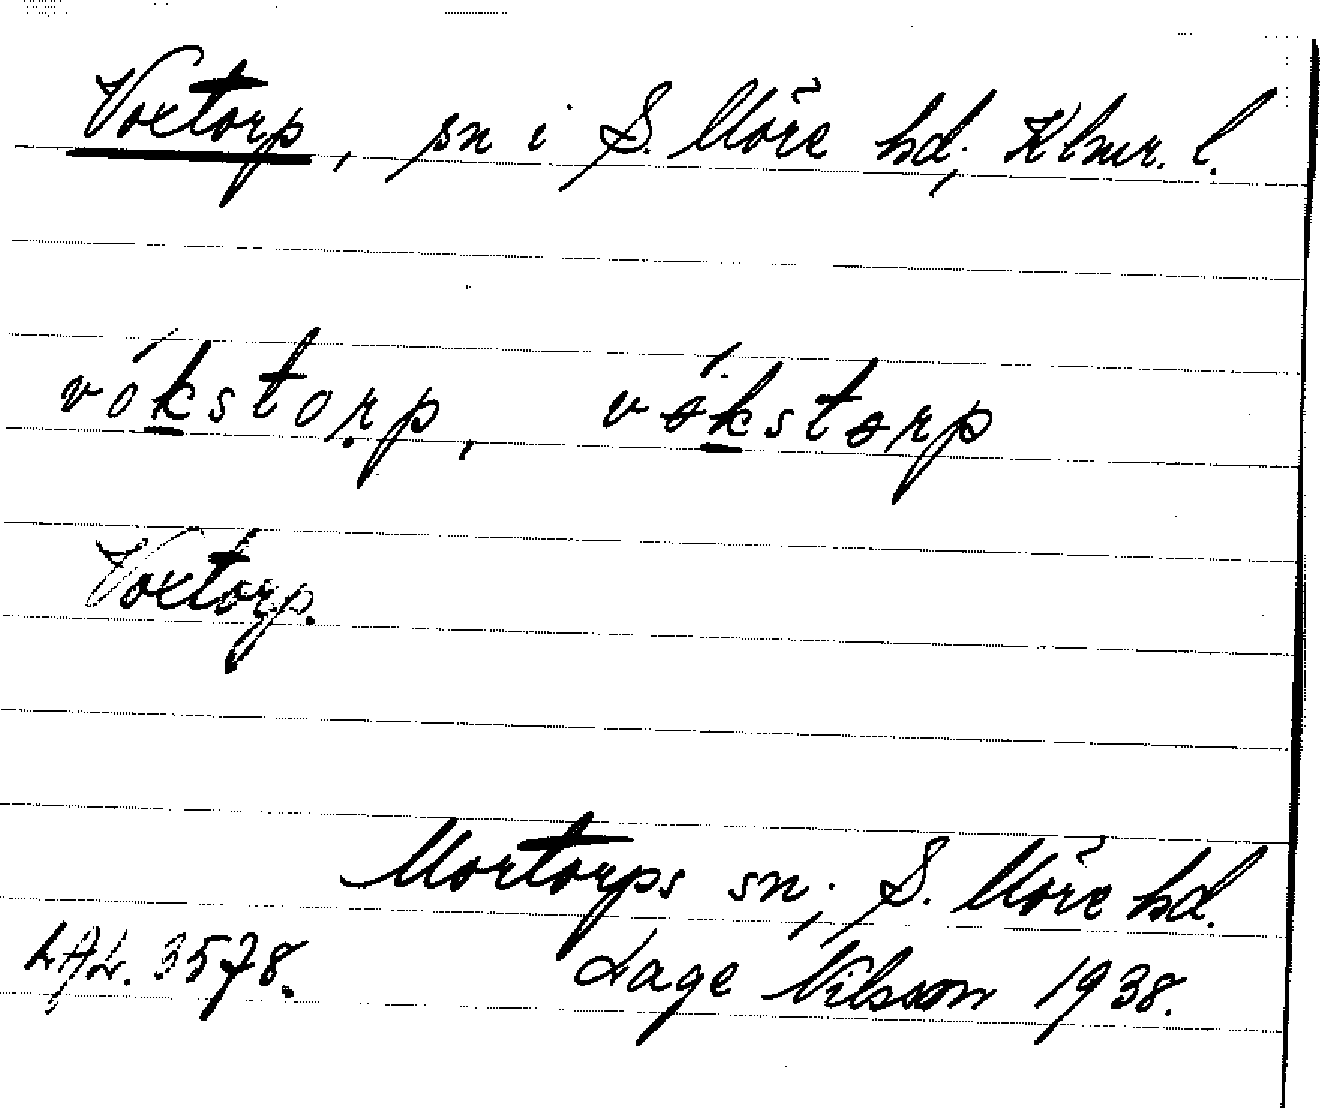 Voxtorp, sn i S. Möre hd; Klmr. l.
vókstorp, vókstorp
Voxtorp.
Mortorps sn; S. Möre hd.
LAL. 3578. Lage Nilsson 1938.